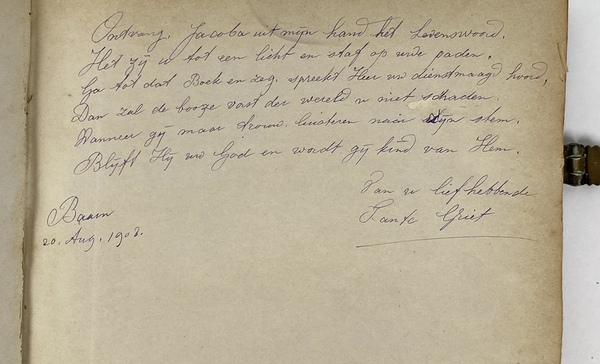 Ontvang, Jacoba uit mijn hand het Levenswoord.
Het zij u tot een licht en staf op uwe paden,
Ga tot dat Boek en zeg, spreekt Heer uw dienstmaagd hoord,
Dan zal de booze vast der wereld u niet schaden.
Wanneer gij maar trouw, luisteren naar Zijn stem,
Blijft Hij uw God en wordt gij kind van Hem.
Van u liefhebbende
Tante Griet
Baarn
20. Aug. 1908.